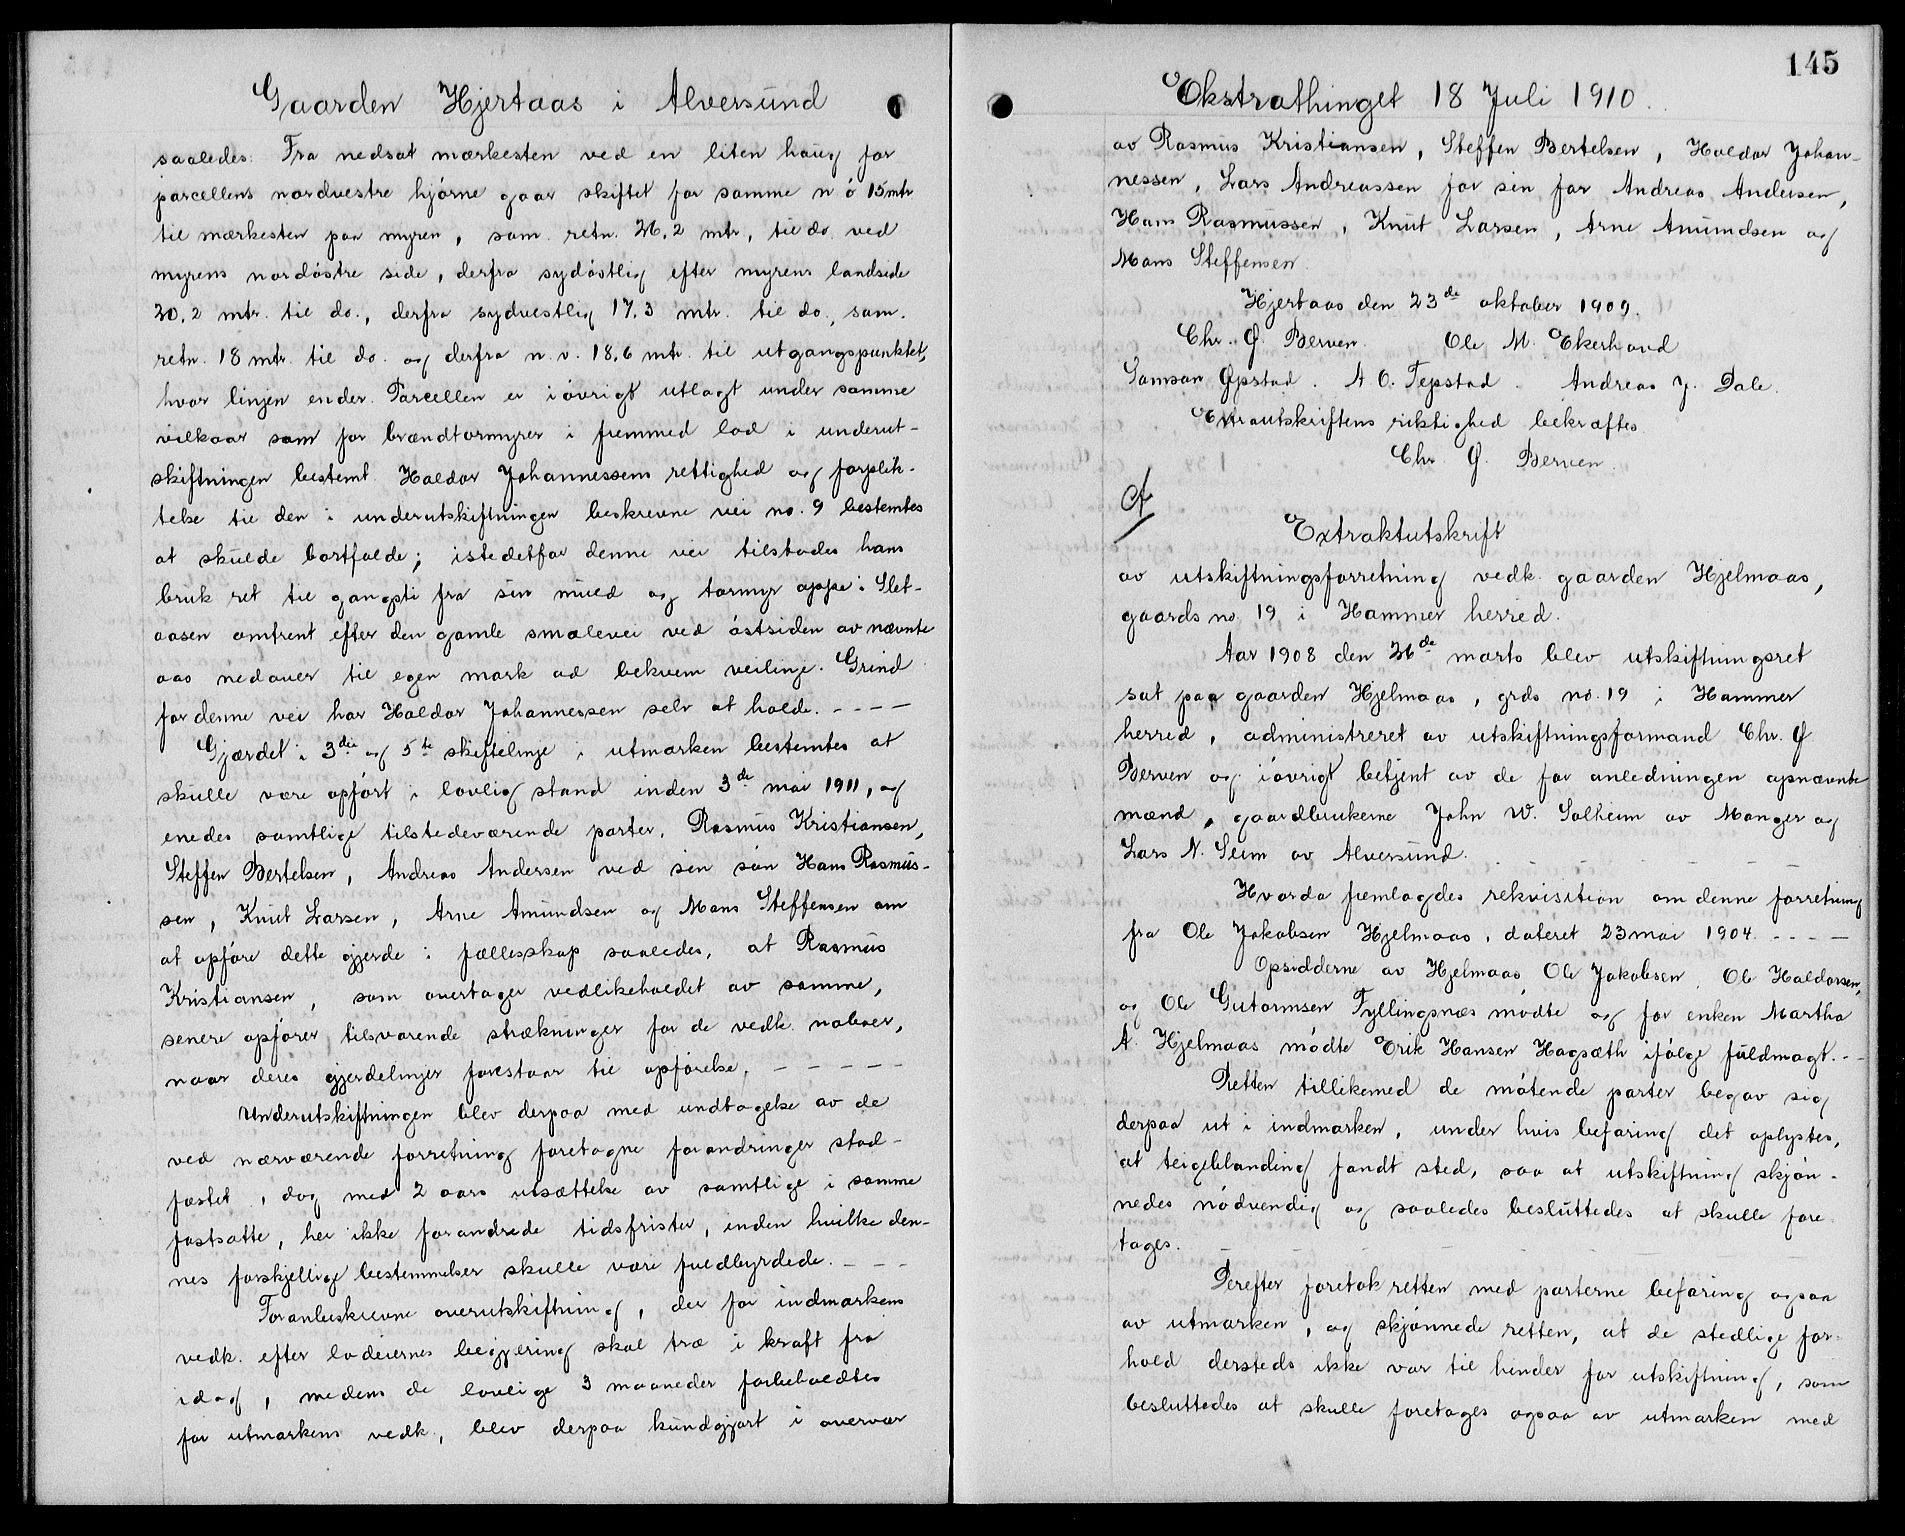 Gaarden Hjertaas i Alversund
saaledes: Fra nedsat mærkesten ved en liten haug for
parcellens nordvestre hjørne gaar skiftet for samme n ø 15 mtr
til mærkesten paa myren, sam. retn. 26,2 mtr, til do. ved
myrens nordøstre side, derfra sydøstlig efter myrens landside
20,2 mtr. til do., derfra sydvestlig 17,3 mtr. til do., sam.
retn. 18 mtr. til do. og derfra n. v. 18,6 mtr. til utgangspunktet,
hvor linjen ender. Parcellen er iøvrigt utlagt under samme
vilkaar som for brændtormyrer i fremmed lod i underut-
skiftningen bestemt. Haldor Johannessens rettighed og forplik-
telse til den i underutskiftningen beskrevne vei no. 9 bestemtes
at skulde bortfalde; istedetfor denne vei tilstodes hans
bruk ret til gangsti fra sin muld og tormyr oppe i Slet-
aasen omtrent efter den gamle smalevei ved østsiden av nævnte
aas nedover til egen mark ad bekvem veilinje. Grind
for denne vei har Haldor Johannessen selv at holde. ----
Gjærdet i 3die og 5te skiftelinje i utmarken bestemtes at
skulle være opført i lovlig stand inden 3de mai 1911, og
enedes samtlige tilstedeværende parter, Rasmus Kristiansen,
Steffen Bertelsen, Andreas Andersen ved sin søn Hans Rasmus-
sen, Knut Larsen, Arne Amundsen og Mons Steffensen om
at opføre dette gjerde i fællesskap saaledes, at Rasmus
Kristiansen, som overtager vedlikeholdet av samme,
senere opfører tilsvarende strækninger for de vedk. naboer,
naar deres gjerdelinjer forestaar til opførelse. -----
Underutskiftningen blev derpaa med undtagelse av de
ved nærværende forretning foretagne forandringer stad-
fæstet, dog med 2 aars utsættelse av samtlige i samme
fastsatte, her ikke forandrede tidsfrister, inden hvilke den-
nes forskjellige bestemmelser skulle være fuldbyrdede. ---
Foranbeskrevne overutskiftning, der for indmarkens
vedk. efter lodeiernes begjæring skal træ i kraft fra
idag, medens de lovlige 3 maaneder forbeholdtes
for utmarkens vedk., blev derpaa kundgjort i overvær
145
Ekstrathinget 18 Juli 1910.
av Rasmus Kristiansen, Steffen Bertelsen, Haldor Johan-
nessen, Lars Andreassen for sin far Andreas Andersen,
Hans Rasmussen, Knut Larsen, Arne Amundsen og
Mons Steffensen.
Hjertaas den 23de oktober 1909.
Chr. G. Berven. Ole M. Ekerhovd
Samson Gjerstad. A. O. Tepstad. Andreas J. Dale.
Extrautskriftens riktighed bekræftes
Chr. G. Berven.
A
Extraktutskrift
av utskiftningsforretning vedk. gaarden Hjelmaas,
gaards no. 19 i Hammer herred.
Aar 1908 den 26de marts blev utskiftningsret
sat paa gaarden Hjelmaas, grds no. 19 i Hammer
herred, administreret av utskiftningsformand Chr. G
Berven og iøvrigt betjent av de for anledningen opnævnte
mænd, gaardbrukerne John W. Solheim av Manger og
Lars N. Seim av Alversund.
Hvorda fremlagdes rekvisition om denne forretning
fra Ole Jakobsen Hjelmaas, dateret 23 mai 1904. ----
Opsidderne av Hjelmaas, Ole Jakobsen, Ole Haldorsen,
og Ole Gutormsen Fyllingsnæs mødte og for enken Martha
A. Hjelmaas mødte Erik Hansen Hagsæth ifølge fuldmagt. --
Retten tillikemed de møtende parter begav sig
derpaa ut i indmarken, under hvis befaring det oplystes,
at teigeblanding fandt sted, saa at utskiftning skjøn-
nedes nødvendig og saaledes besluttedes at skulle fore-
tages.
Derefter foretok retten med parterne befaring ogsaa
av utmarken, og skjønnede retten, at de stedlige for-
hold dersteds ikke var til hinder for utskiftning, som
besluttedes at skulle foretages ogsaa av utmarken med